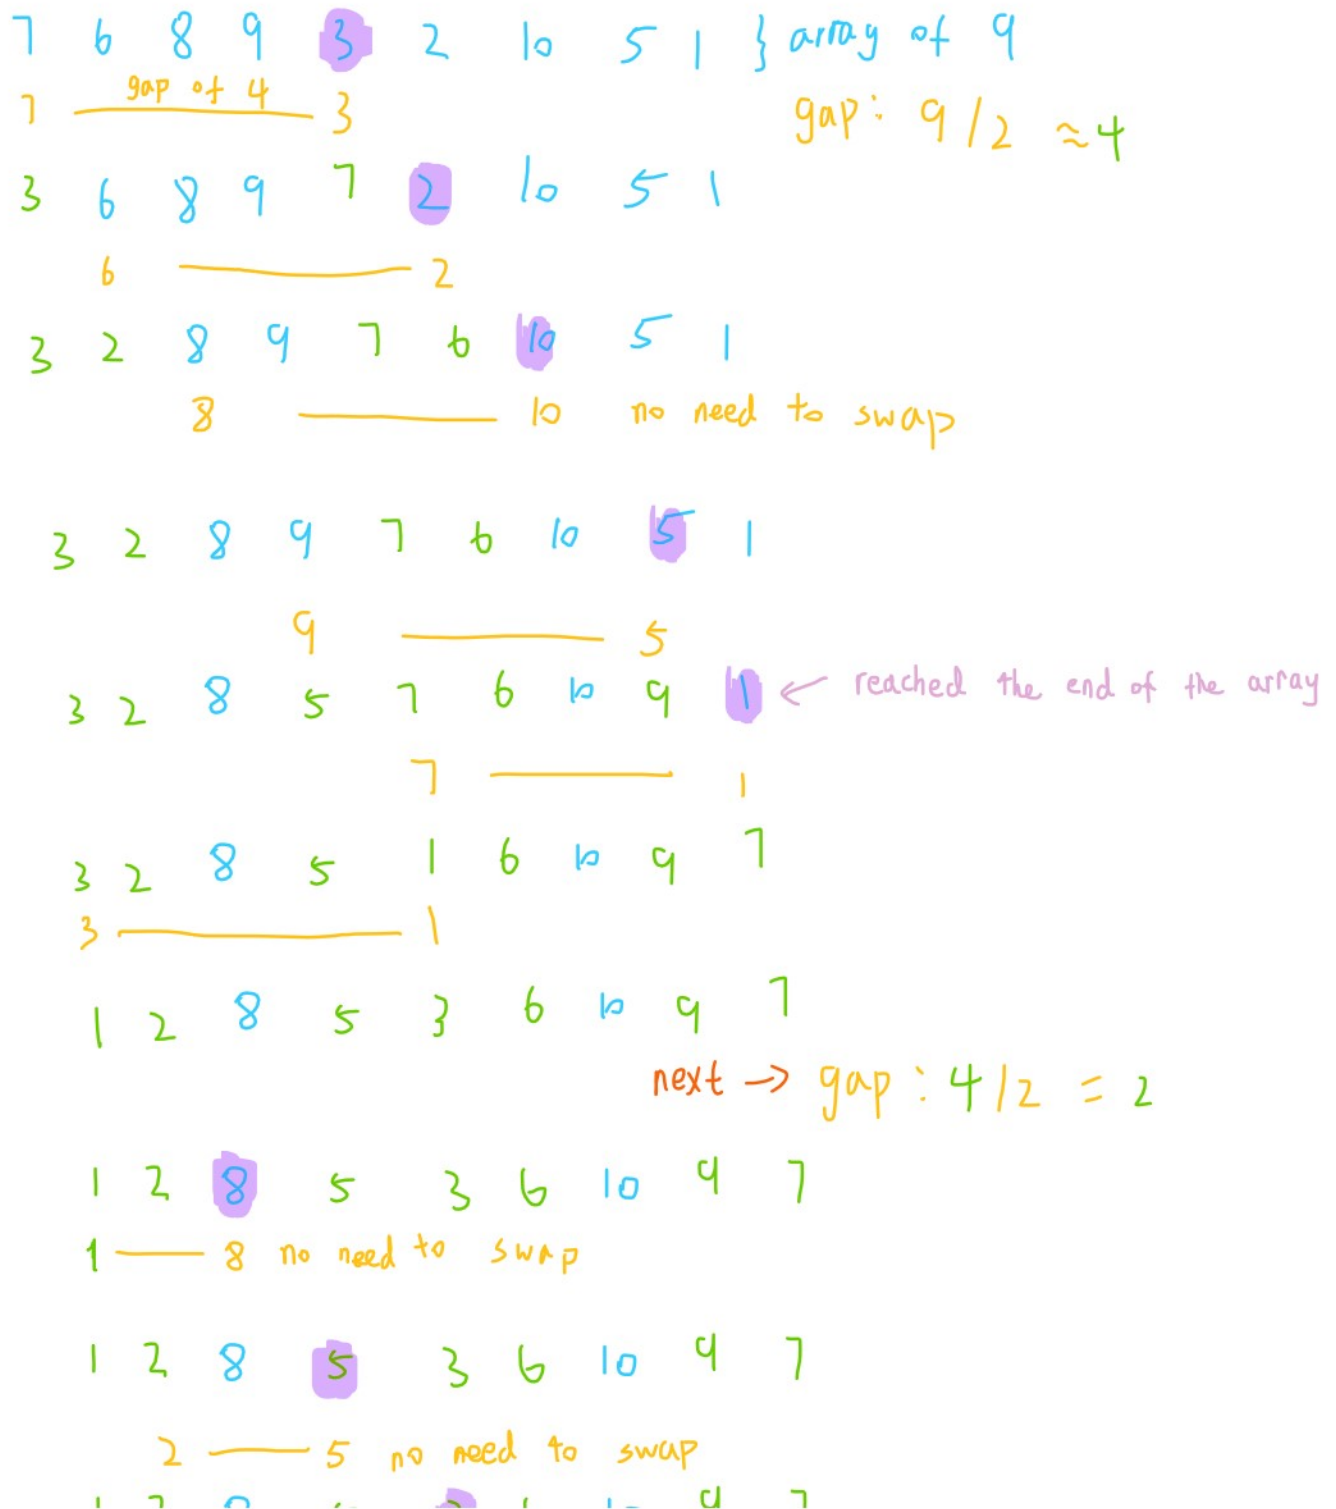 7 6 8 9 3 2 10 5 1 } array of 9
gap of 4
7 3 gap: 9/2 ≈4
3 6 8 9 7 2 10 5 1
6 2
3 2 8 9 7 6 10 5 1
8 10 no need to swap
3 2 8 9 7 6 10 5 1
9 5
3 2 8 5 7 6 10 9 1 ← reached the end of the array
7 1
3 2 8 5 1 6 10 9 7
3 1
1 2 8 5 3 6 10 9 7
next → gap: 4/2 = 2
1 2 8 5 3 6 10 9 7
1 8 no need to swap
1 2 8 5 3 6 10 9 7
2 5 no need to swap